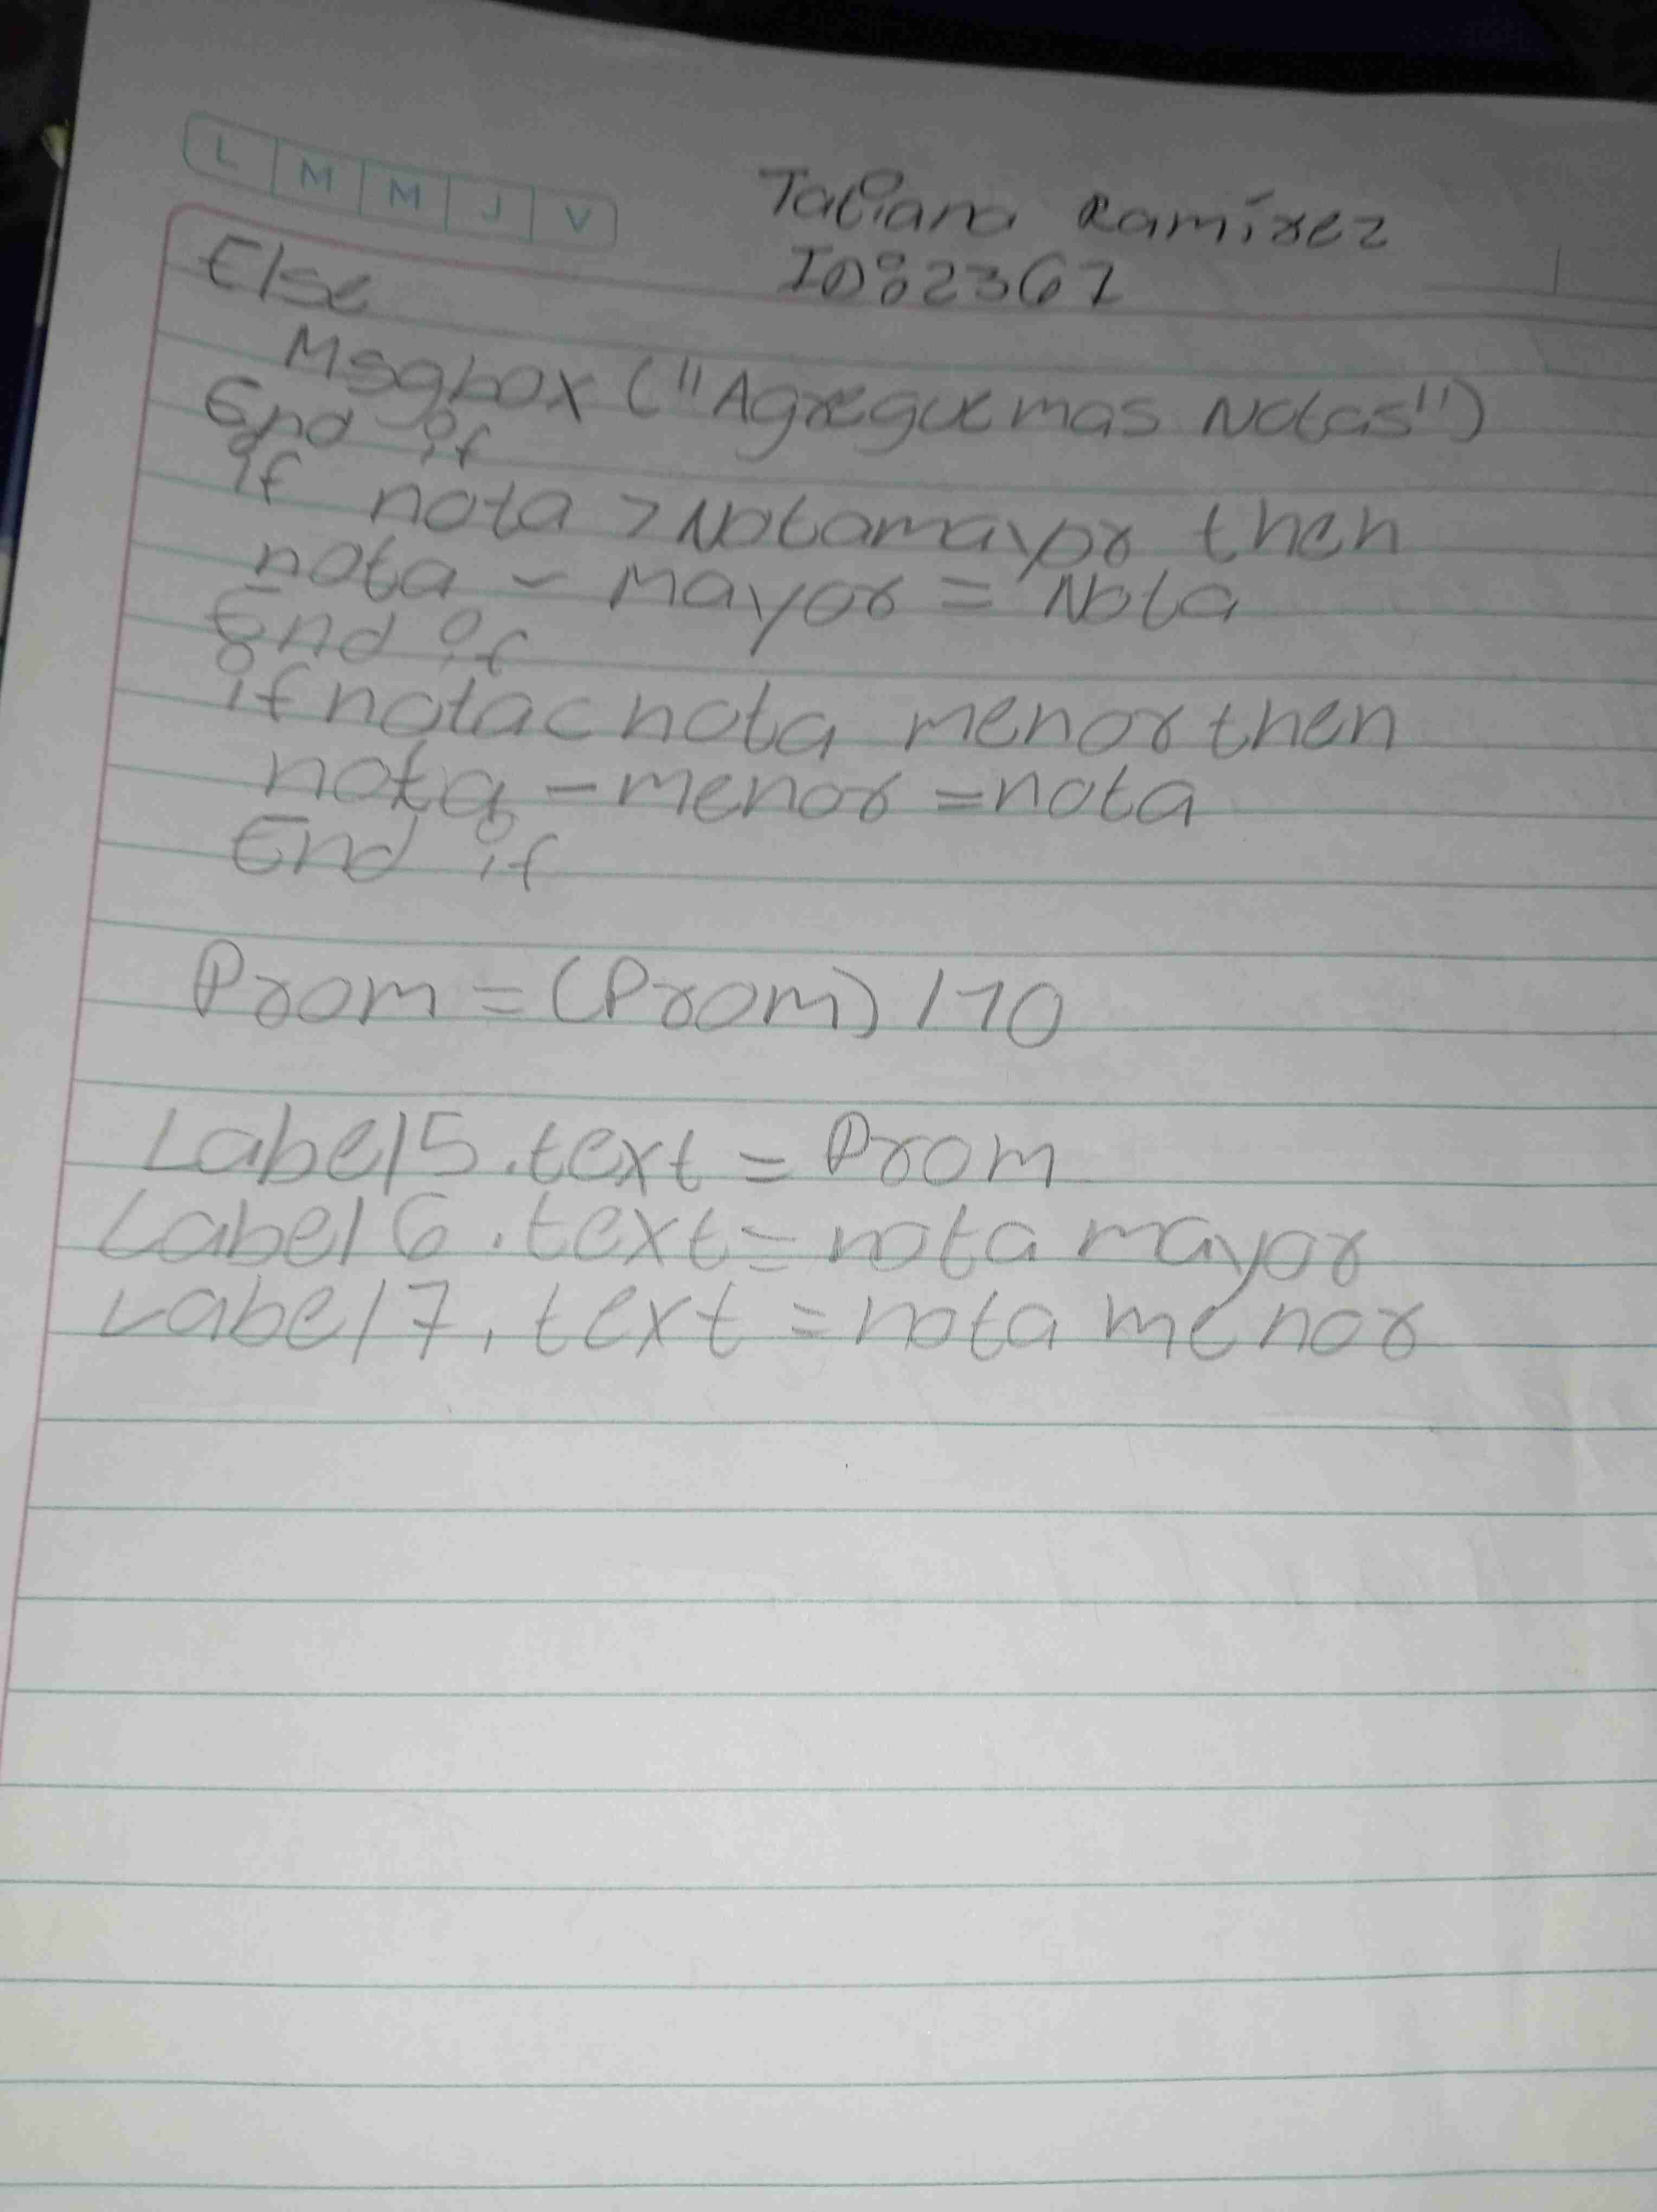 L M M J V
Tatiana Ramírez
ID:2367
Else
Msgbox ("Agregue mas Notas")
End if
if nota > Notamayor then
nota - mayor = Nota
End if
if nota < nota menor then
nota - menor = nota
End if
Prom = (Prom) / 10
Label5.text = Prom
Label6.text = nota mayor
Label7.text = nota menor